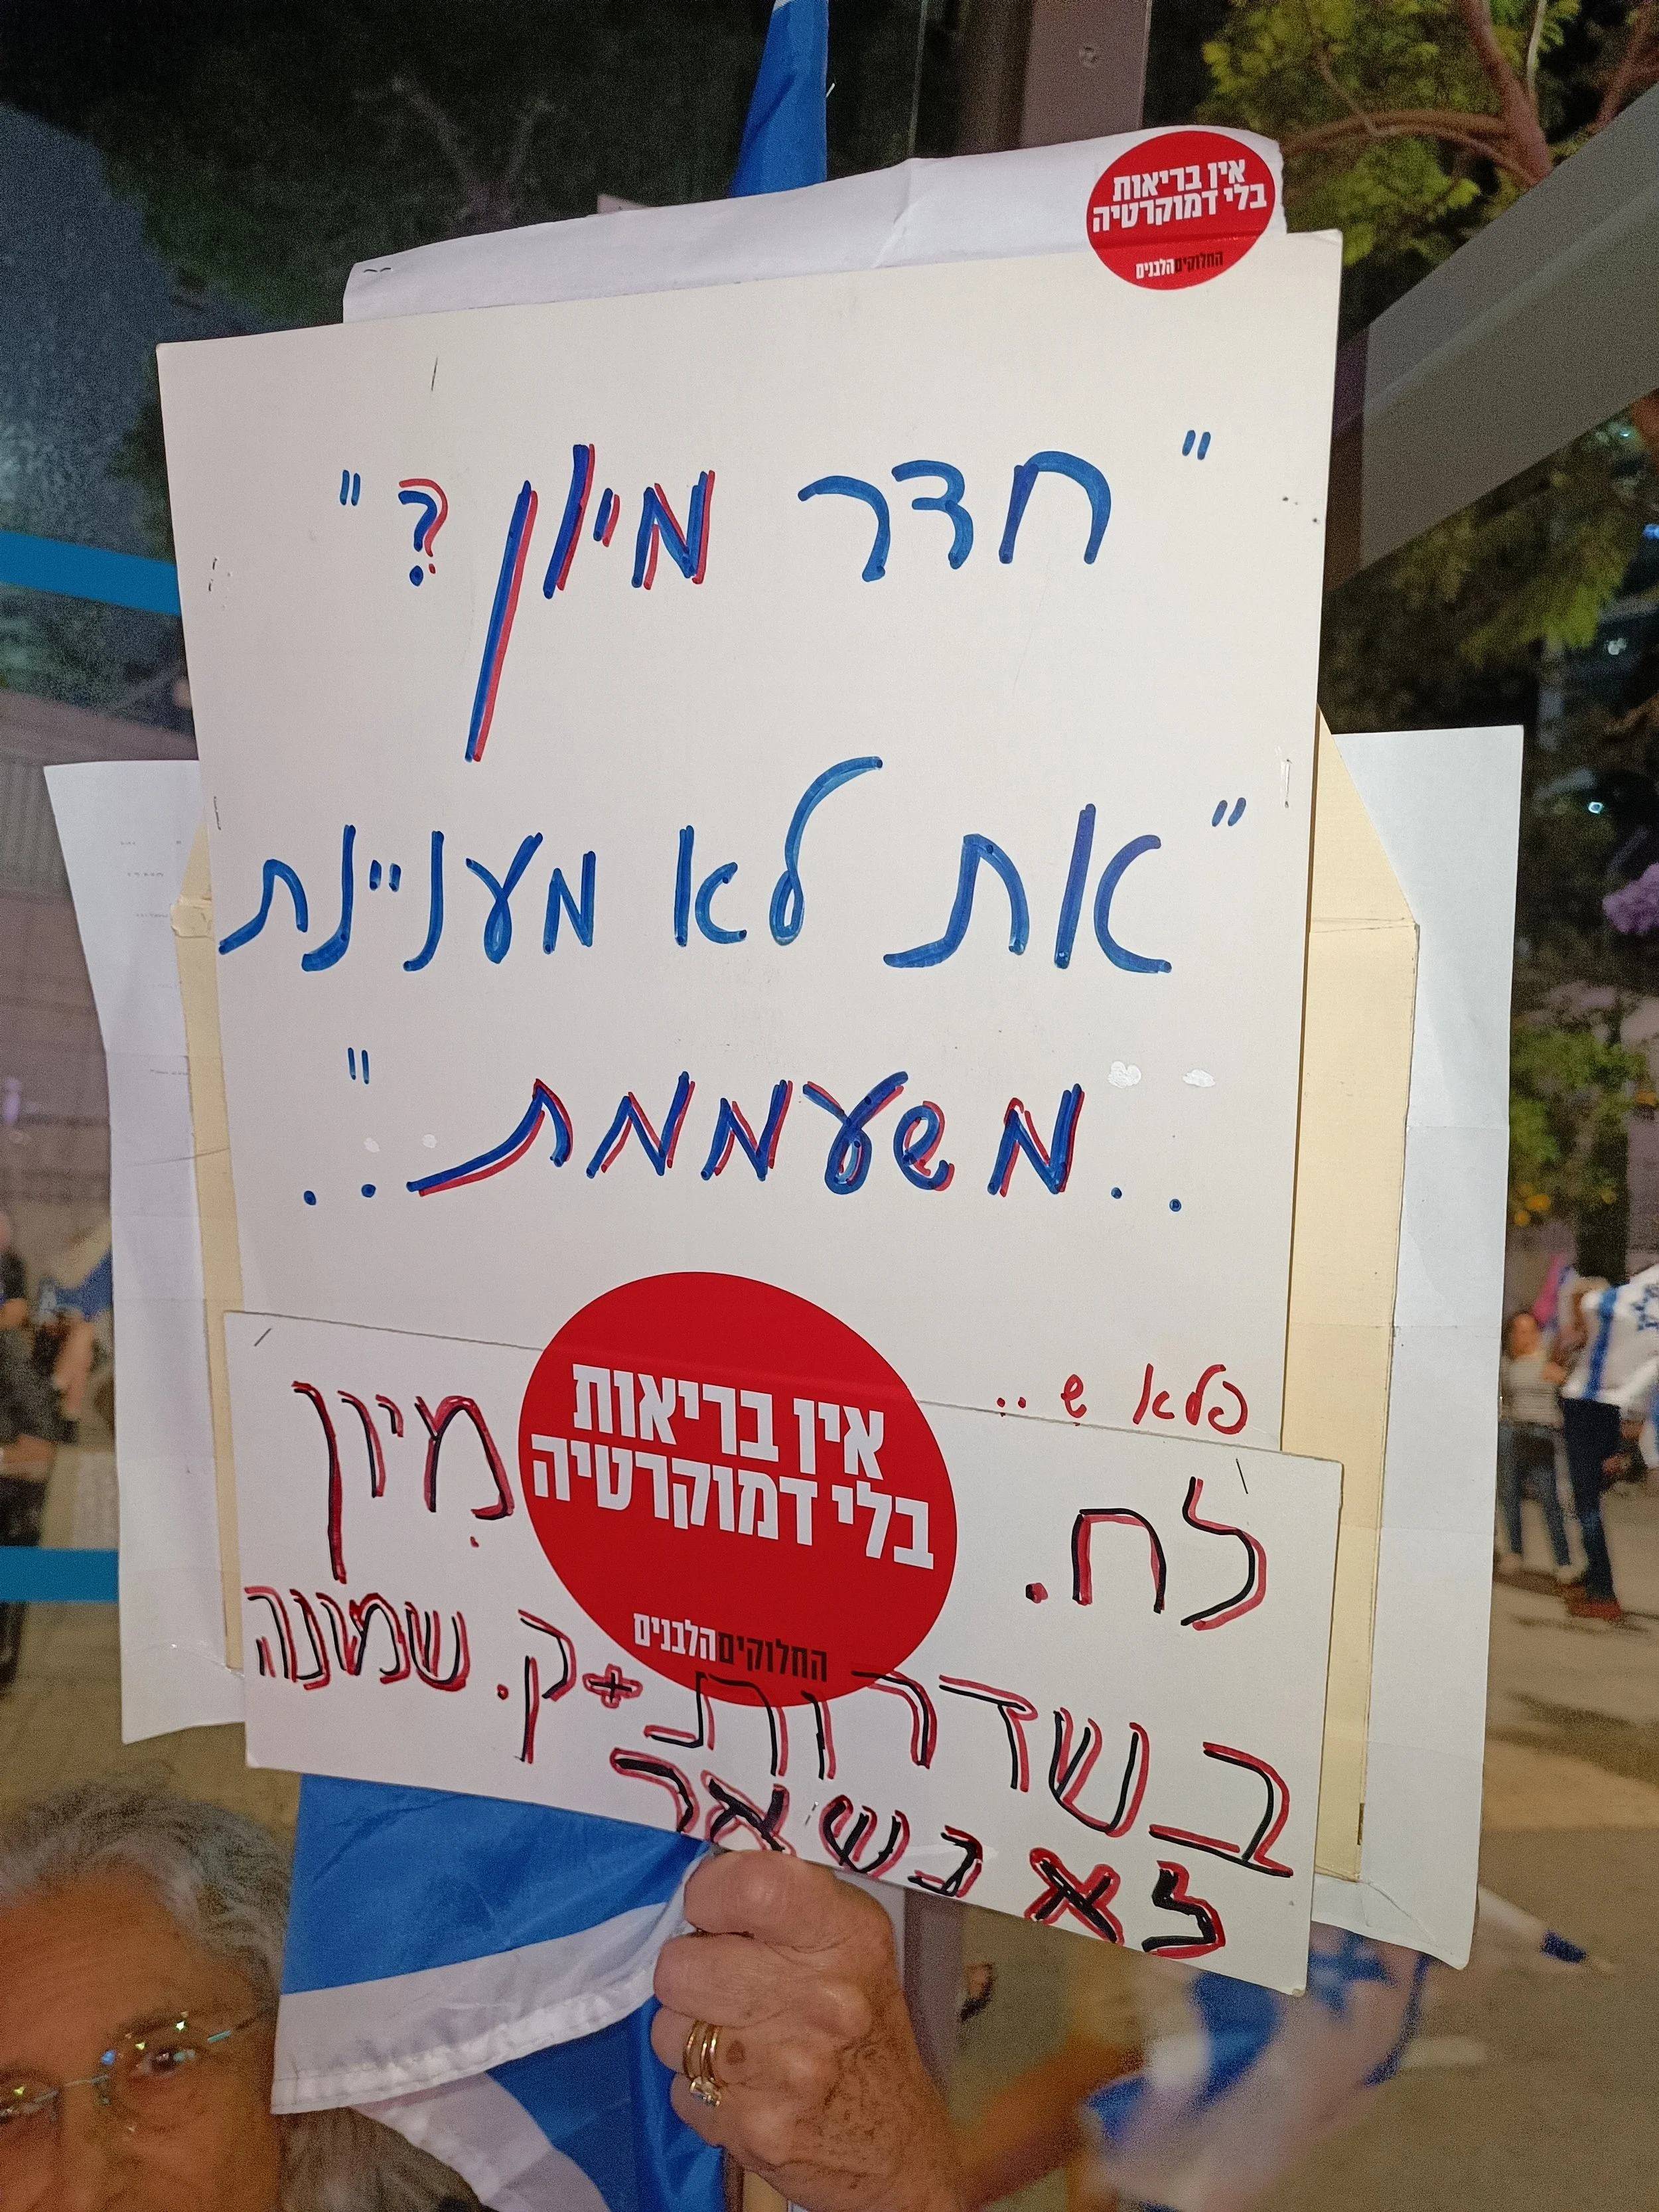 אין בריאות
בלי דמוקרטיה
החלוקיםהלבנים
"חדר מיון ?"
"את לא מעניינת
..משעממת"..
פלא ש..
אין בריאות
בלי דמוקרטיה
החלוקיםהלבנים
לח. מיון
בשדרות + ק. שמונה
לא בשאר